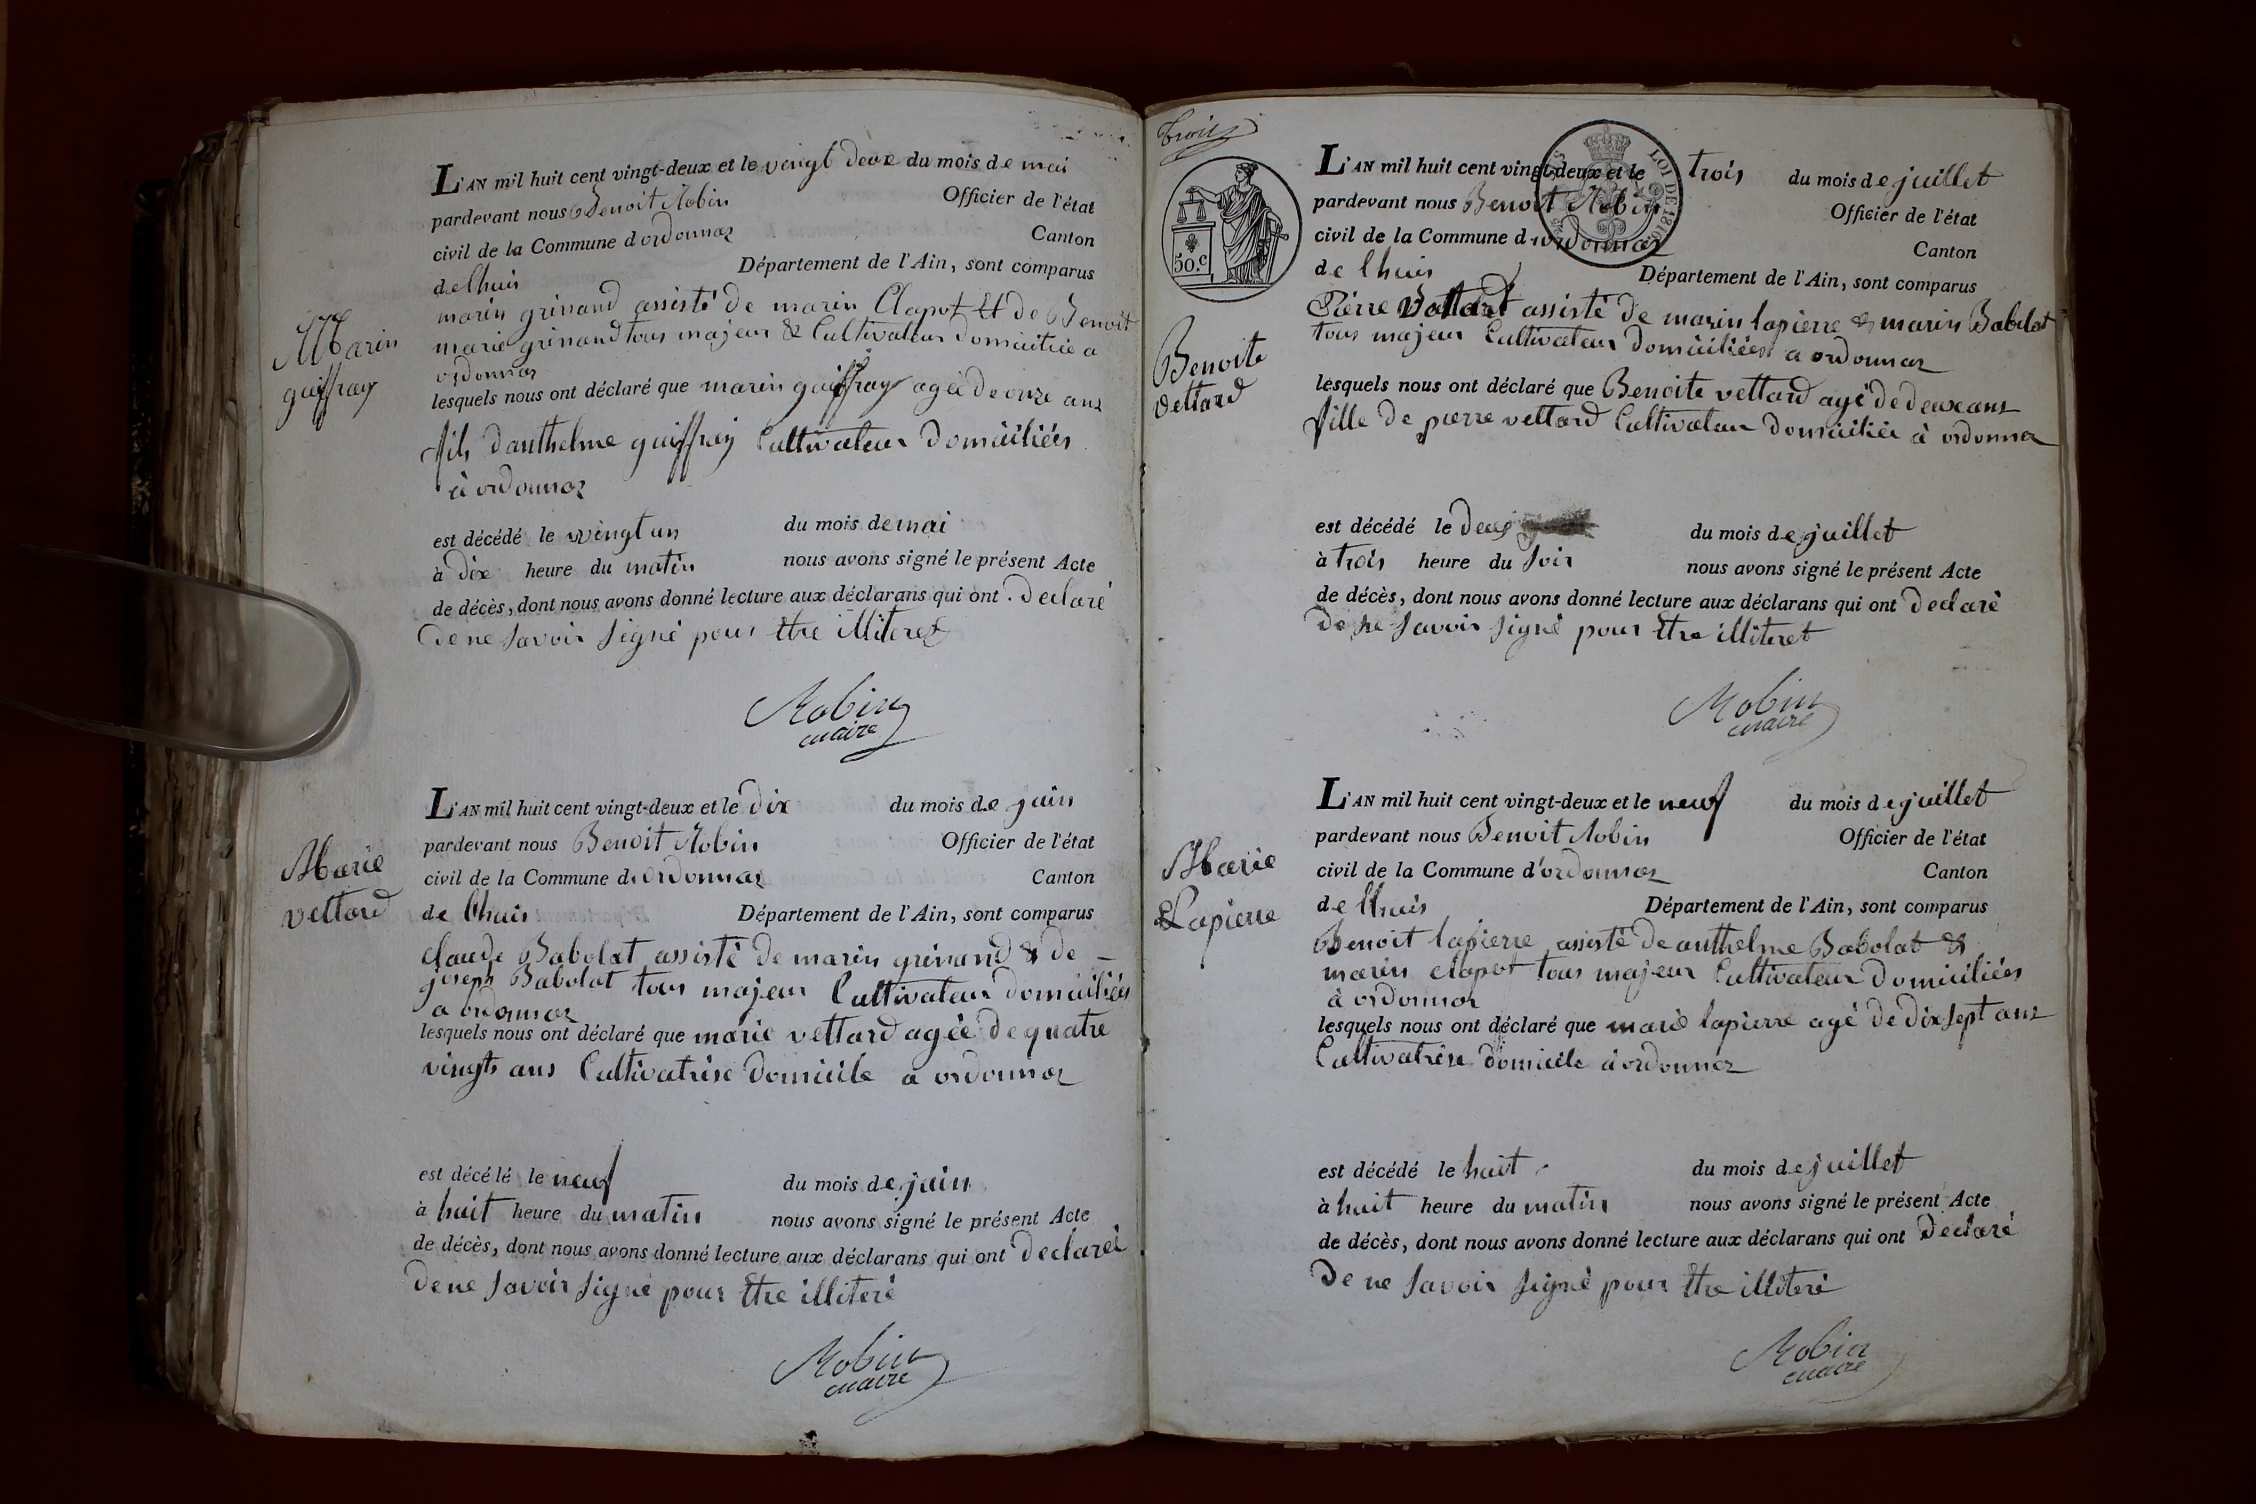 L'AN mil huit cent vingt-deux et le vingt deux du mois de mai
pardevant nous Benoit Robin Officier de l'état
civil de la Commune d ordonnaz Canton
de lhuis Département de l'Ain, sont comparus
marin grinand assisté de marin Clapot et de Benoit
marie grinand tous majeur & Cultivateur domicilié a
ordonnaz
Marin
gaiffray
lesquels nous ont déclaré que marin gaiffray agée de onze ans
fils danthelme gaiffray Cultivateur domiciliées
à ordonnaz
est décédé le vingt un du mois de mai
à dix heure du matin nous avons signé le présent Acte
de décès, dont nous avons donné lecture aux déclarans qui ont declaré
de ne savoir signé pour être illiteret
Robin
maire
L'AN mil huit cent vingt-deux et le dix du mois de juin
pardevant nous Benoit Robin Officier de l'état
civil de la Commune d ordonnaz Canton
de lhuis Département de l'Ain, sont comparus
Marie
vettard
claude Babolat assisté de marin grinand & de
joseph Babolat tous majeur Cultivateur domiciliées
a ordonnaz
lesquels nous ont déclaré que marie vettard agée de quatre
vingts ans Cultivatrise domicile a ordonnaz
est décélé le neuf du mois de juin
à huit heure du matin nous avons signé le présent Acte
de décès, dont nous avons donné lecture aux déclarans qui ont declaré
de ne savoir signé pour être illiteré
Robin
maire
trois
50.c
LOI DE 1816
L'AN mil huit cent vingt-deux et le trois du mois de juillet
pardevant nous Benoit Robin Officier de l'état
civil de la Commune d ordonnaz Canton
de lhuis Département de l'Ain, sont comparus
Pierre Vettard assisté de marin lapierre & marin Babolat
tous majeur Cultivateur domiciliées a ordonnaz
Benoite
vettard
lesquels nous ont déclaré que Benoite vettard agé de deux ans
fille de pierre vettard Cultivateur domiciliée à ordonnaz
est décédé le deux du mois de juillet
à trois heure du soir nous avons signé le présent Acte
de décès, dont nous avons donné lecture aux déclarans qui ont declaré
de ne savoir signé pour être illiteret
Robin
maire
L'AN mil huit cent vingt-deux et le neuf du mois de juillet
pardevant nous Benoit Robin Officier de l'état
civil de la Commune d'ordonnaz Canton
de lhuis Département de l'Ain, sont comparus
Marie
Lapierre
Benoit lapierre assisté de anthelme Babolat &
marin clapot tous majeur Cultivateur domiciliées
à ordonnaz
lesquels nous ont déclaré que marie lapierre agé de dix sept ans
Cultivatrise domicile à ordonnaz
est décédé le huit du mois de juillet
à huit heure du matin nous avons signé le présent Acte
de décès, dont nous avons donné lecture aux déclarans qui ont declaré
de ne savoir signé pour être illiteré
Robin
maire